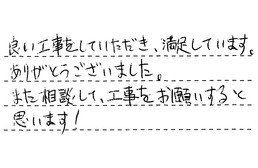 良い工事をしていただき、満足しています。
ありがとうございました。
また相談して、工事をお願いすると
思います!